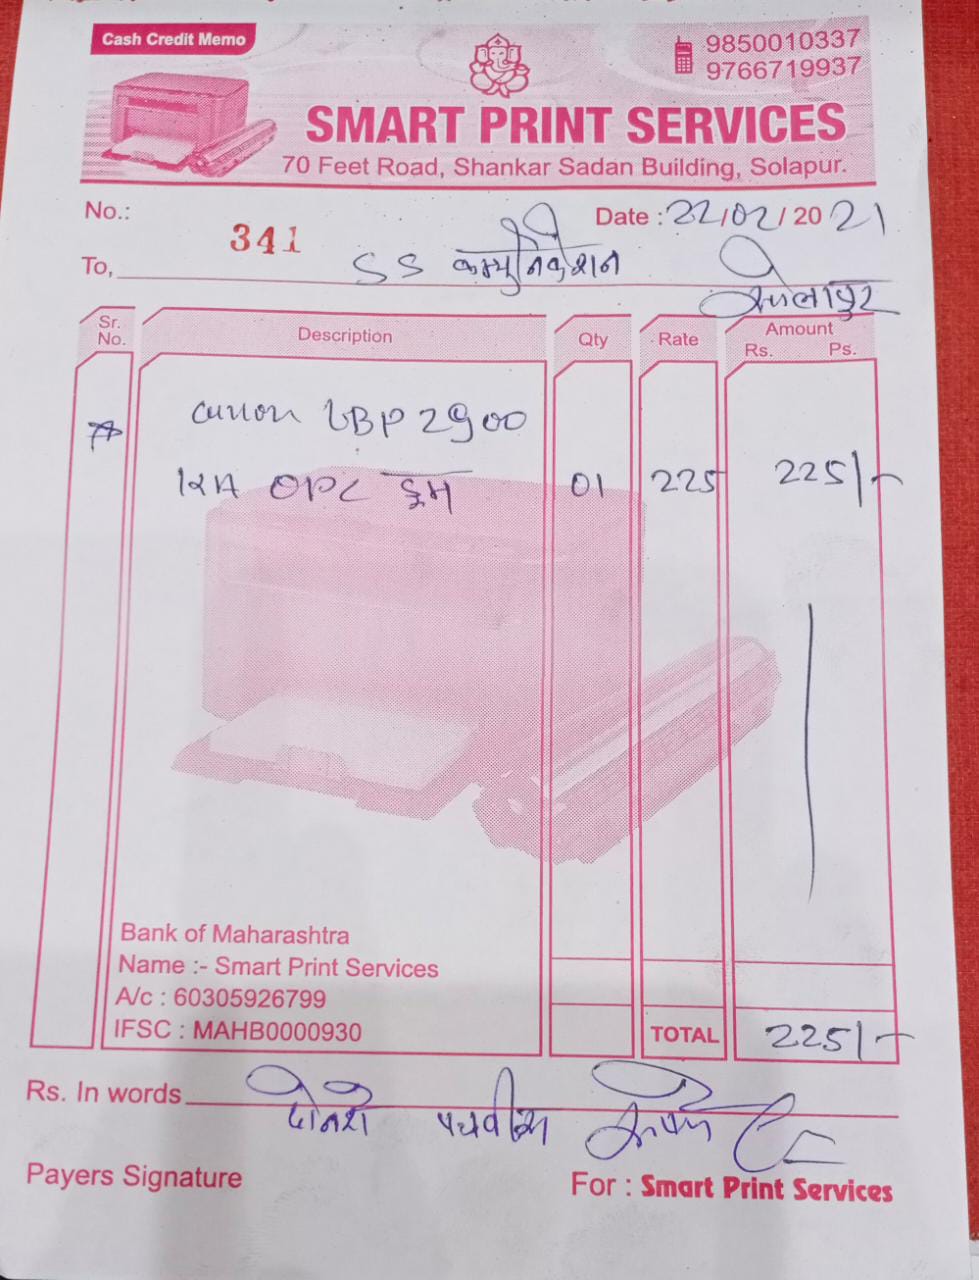 Cash Credit Memo
9850010337
9766719937
SMART PRINT SERVICES
70 Feet Road, Shankar Sadan Building, Solapur.
No.: 341
Date : 22/02/2021
To, SS कम्युनिकेशन
सोलापुर
Sr. No. Description Qty Rate Amount Rs. Ps.
canon LBP 2900
12A OPC ड्रम 01 225 225/-
Bank of Maharashtra
Name :- Smart Print Services
A/c : 60305926799
IFSC : MAHB0000930
TOTAL 225/-
Rs. In words दोनशे पंचवीस रुपये
Payers Signature
For : Smart Print Services